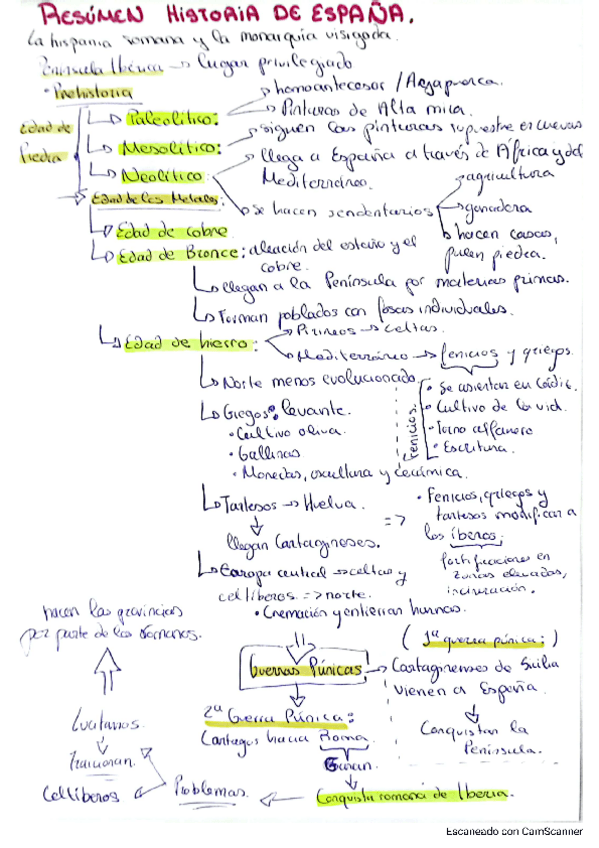 RESÚMEN HISTORIA DE ESPAÑA.
La hispania romana y la monarquía visigoda.
Península Ibérica → lugar privilegiado
• Prehistoria
homoantecesor / Atapuerca.
Edad de Piedra
Paleolítico:
Pinturas de Alta mira.
Mesolítico:
siguen las pinturas rupestre en cuevas
Neolítico:
llega a España a través de África y del Mediterráneo.
se hacen sendentarios
agricultura
ganadera
hacen casas, pulen piedra.
Edad de los Metales:
Edad de cobre.
Edad de Bronce: aleación del estaño y el cobre.
llegan a la Península por materias primas.
Forman poblados con fosas individuales.
Edad de hierro:
Pirineos → celtas.
Mediterráneo → fenicios y griegos.
Norte menos evolucionado
Fenicios.
• Se asientan en Cádiz.
• Cultivo de la vid.
• Torno alfarero
• Escritura.
Griegos: levante.
• Cultivo oliva.
• Gallinas
• Monedas, escultura y cerámica.
Tartesos → Huelva.
llegan Cartagineses.
=> • Fenicios, griegos y tartesos modifican a los íberos.
fortificaciones en zonas elevadas, incineración.
Europa central → celtas y celtíberos => norte.
• Cremación y entierran
hacen las provincias por parte de los romanos.
(1ª guerra púnica:)
Guerras Púnicas → Cartaginenses de Sicilia vienen a España.
Conquistan la Península.
2ª Gerra Púnica:
Cartagos hacia Roma.
Ganan.
Conquista romana de Iberia.
Problemas.
Lucitanos.
Traicionan.
Celtíberos
Escaneado con CamScanner